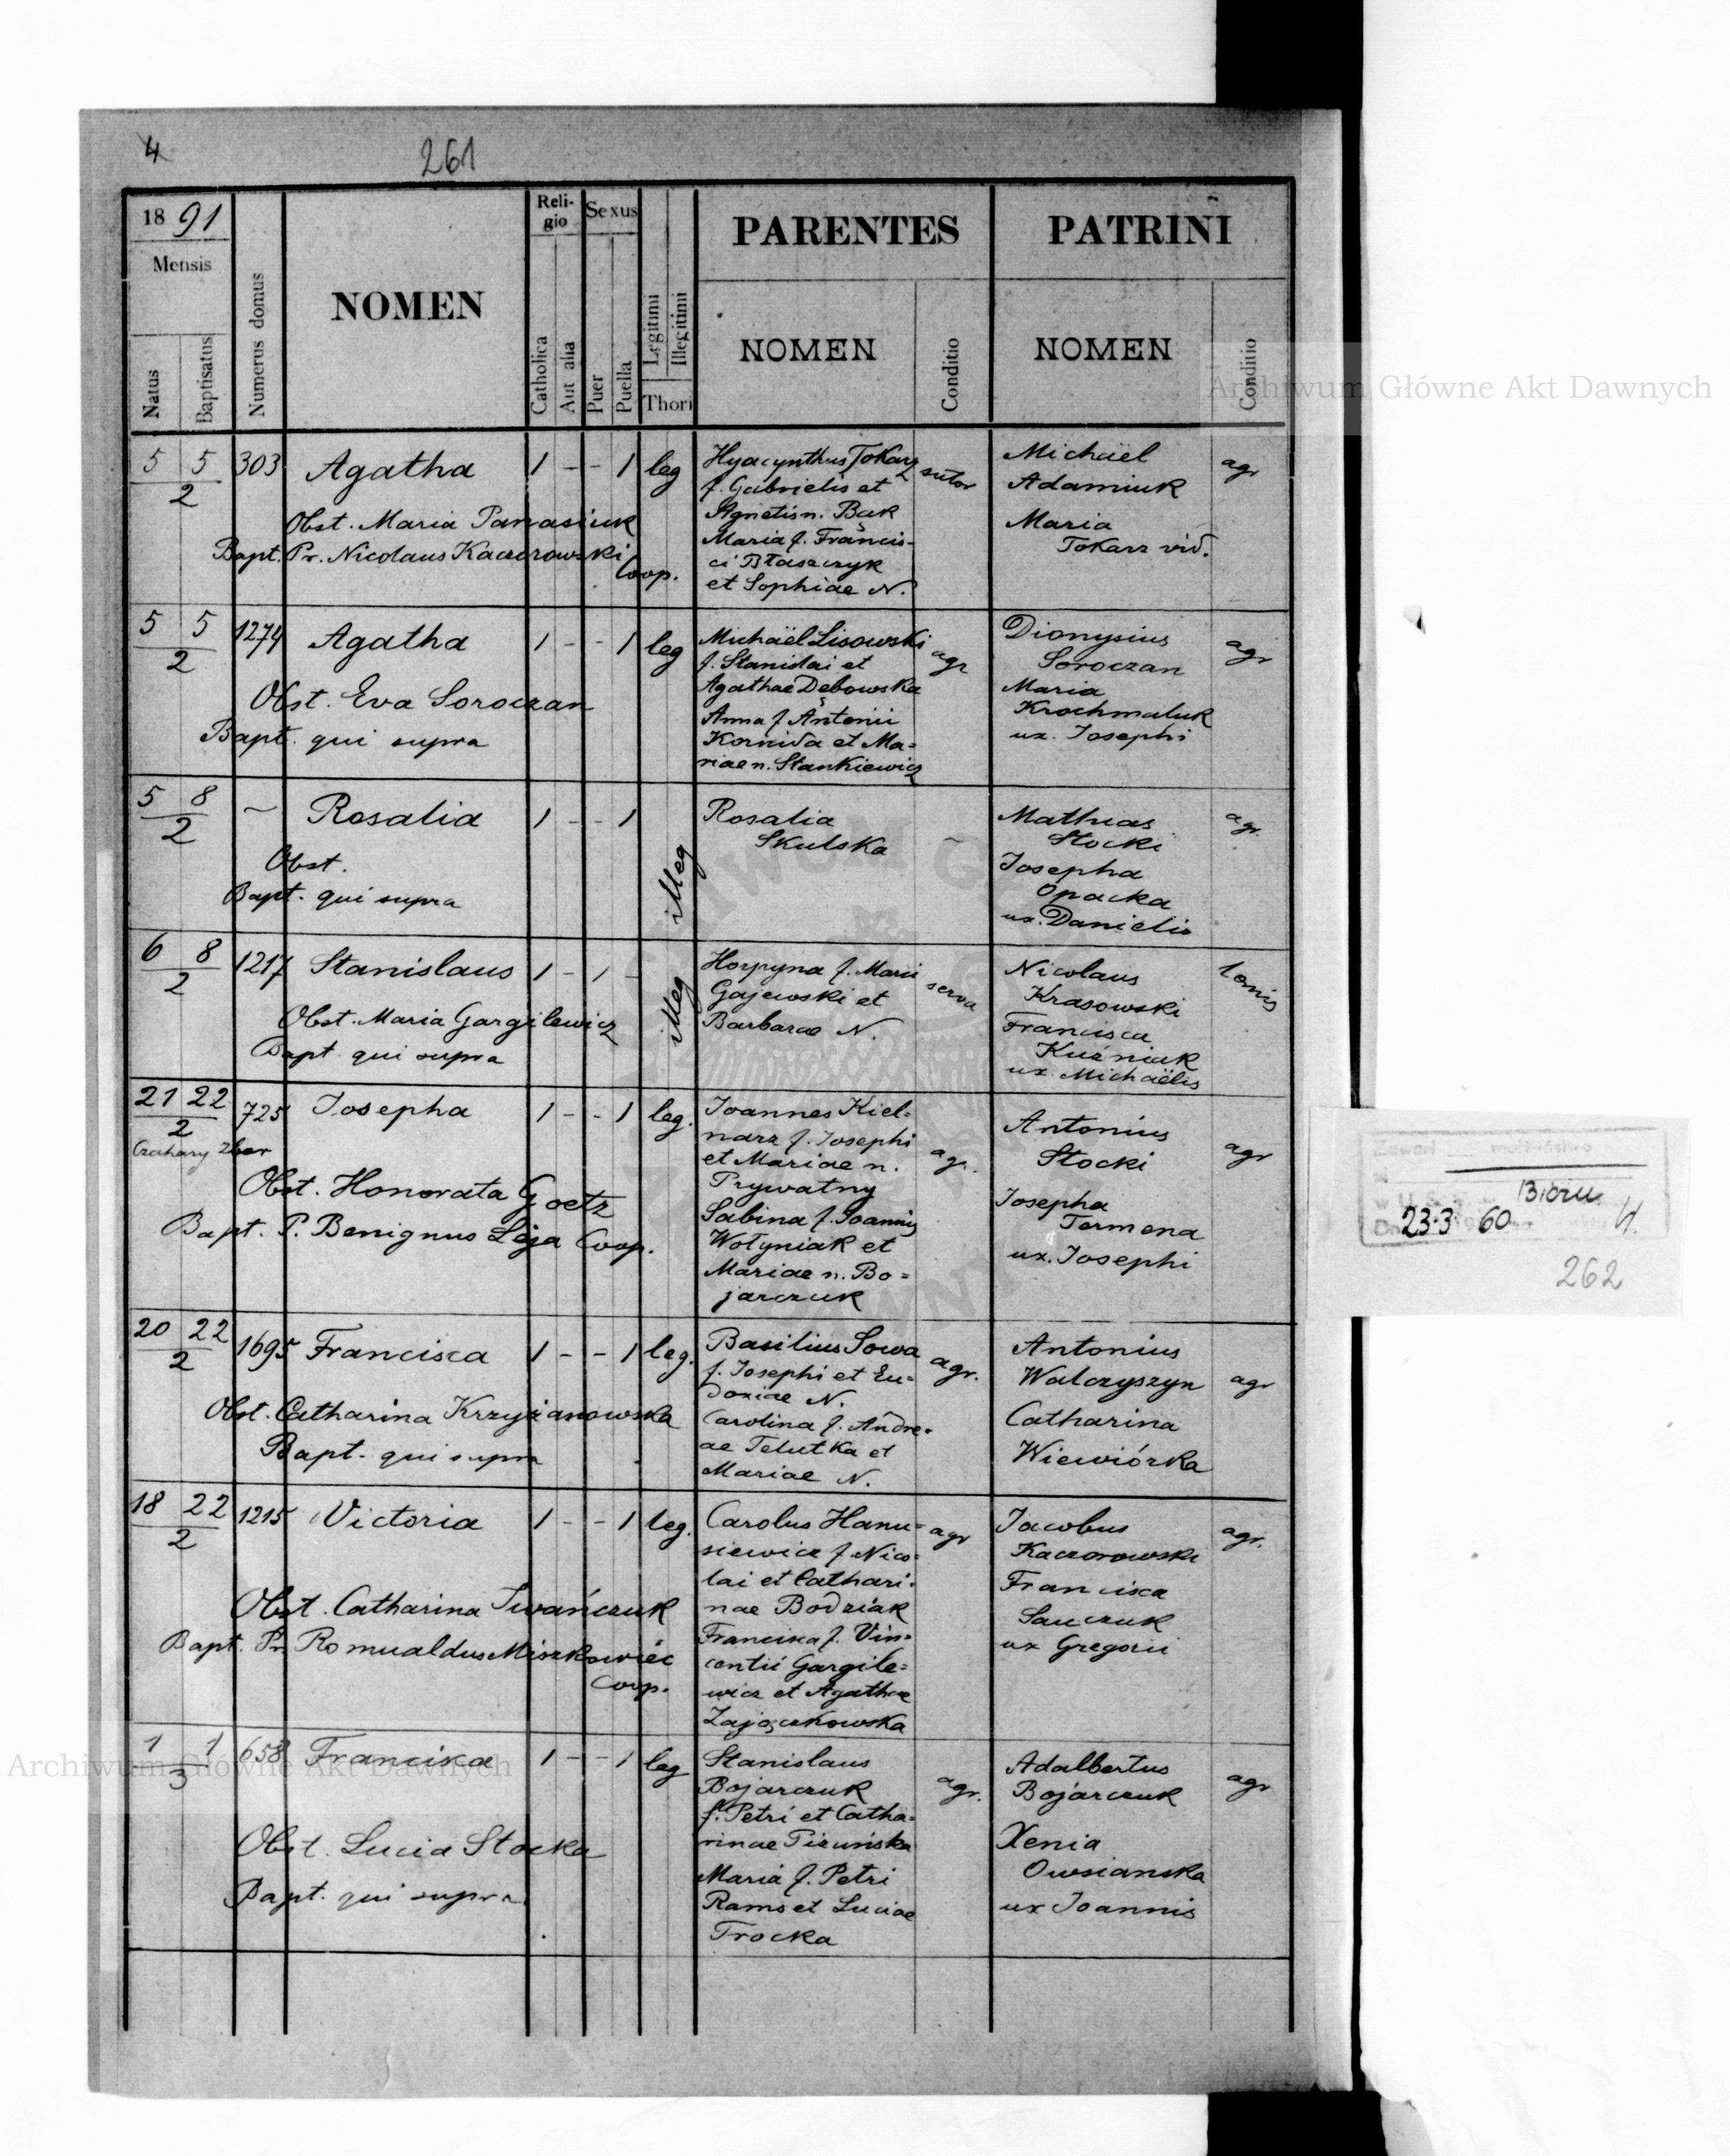 4
261
18 91
Mensis
Natus
Baptisatus
Numerus domus
NOMEN
Reli-
gio
Catholica
Aut alia
Sexus
Puer
Puella
Legitimi
Illegitimi
Thori
PARENTES
NOMEN
Conditio
PATRINI
NOMEN
Conditio
Archiwum Główne Akt Dawnych
5 5
2
303
Agatha
1 - - 1 leg
Obst. Maria Panasiuk
Bapt. Pr. Nicolaus Kaczorowski
Coop.
Hyacynthus Tokarz
f. Gabrielis et
Agnetis n. Bąk
Maria f. Francis-
ci Błaszczyk
et Sophiae N.
sutor
Michaël
Adamiuk
Maria
Tokarz vid.
agr
5 5
2
1274
Agatha
1 - - 1 leg
Obst. Eva Soroczan
Bapt. qui supra
Michaël Lisowski
f. Stanislai et
Agathae Dębowska
Anna f. Antonii
Kornida et Ma=
riae n. Stankiewicz
agr
Dionysius
Soroczan
Maria
Krochmaluk
ux. Josephi
agr
5 8
2
~
Rosalia
1 - - 1
illeg
Obst.
Bapt. qui supra
Rosalia
Skulska
~
Mathias
Stocki
Josepha
Opacka
ux. Danielis
agr.
6 8
2
1217
Stanislaus
1 - 1 -
illeg
Obst. Maria Gargilewicz
Bapt. qui supra
Horpyna f. Marii
Gajewski et
Barbarae N.
serva
Nicolaus
Krasowski
Francisca
Kuźniak
ux. Michaëlis
21 22
2
Czahary zbar
725
Josepha
1 - - 1 leg.
Obst. Honorata Goetz
Bapt. P. Benignus Loja Coop.
Joannes Kiel=
narz f. Josephi
et Mariae n.
Prywatny
Sabina f. Joannis
Wołyniak et
Mariae n. Bo=
jarczuk
agr.
Antonius
Stocki
Josepha
Termena
ux. Josephi
agr
20 22
2
1695
Francisca
1 - - 1 leg.
Obst. Catharina Krzyżanowska
Bapt. qui supra
Basilius Sowa
f. Josephi et Eu=
doxiae N.
Carolina f. Andre=
ae Telutka et
Mariae N.
agr.
Antonius
Walczyszyn
Catharina
Wiewiórka
agr
18 22
2
1215
Victoria
1 - - 1 leg.
Obst. Catharina Iwańczuk
Bapt. Pr. Romualdus Miszkowiec
Coop.
Carolus Hanu=
siewicz f. Nico=
lai et Cathari=
nae Bodziak
Francisca f. Vin=
centii Gargile=
wicz et Agathae
Zajączkowska
agr
Jacobus
Kaczorowski
Francisca
Sauczuk
ux Gregorii
agr.
1 1
3
658
Francisca
1 - - 1 leg
Obst. Lucia Stocka
Bapt. qui supra
Stanislaus
Bojarczuk
f. Petri et Catha=
rinae Pizuńska
Maria f. Petri
Rams et Luciae
Trocka
agr.
Adalbertus
Bojarczuk
Xenia
Owsianska
ux Joannis
agr
Archiwum Główne Akt Dawnych
23.3 60
262